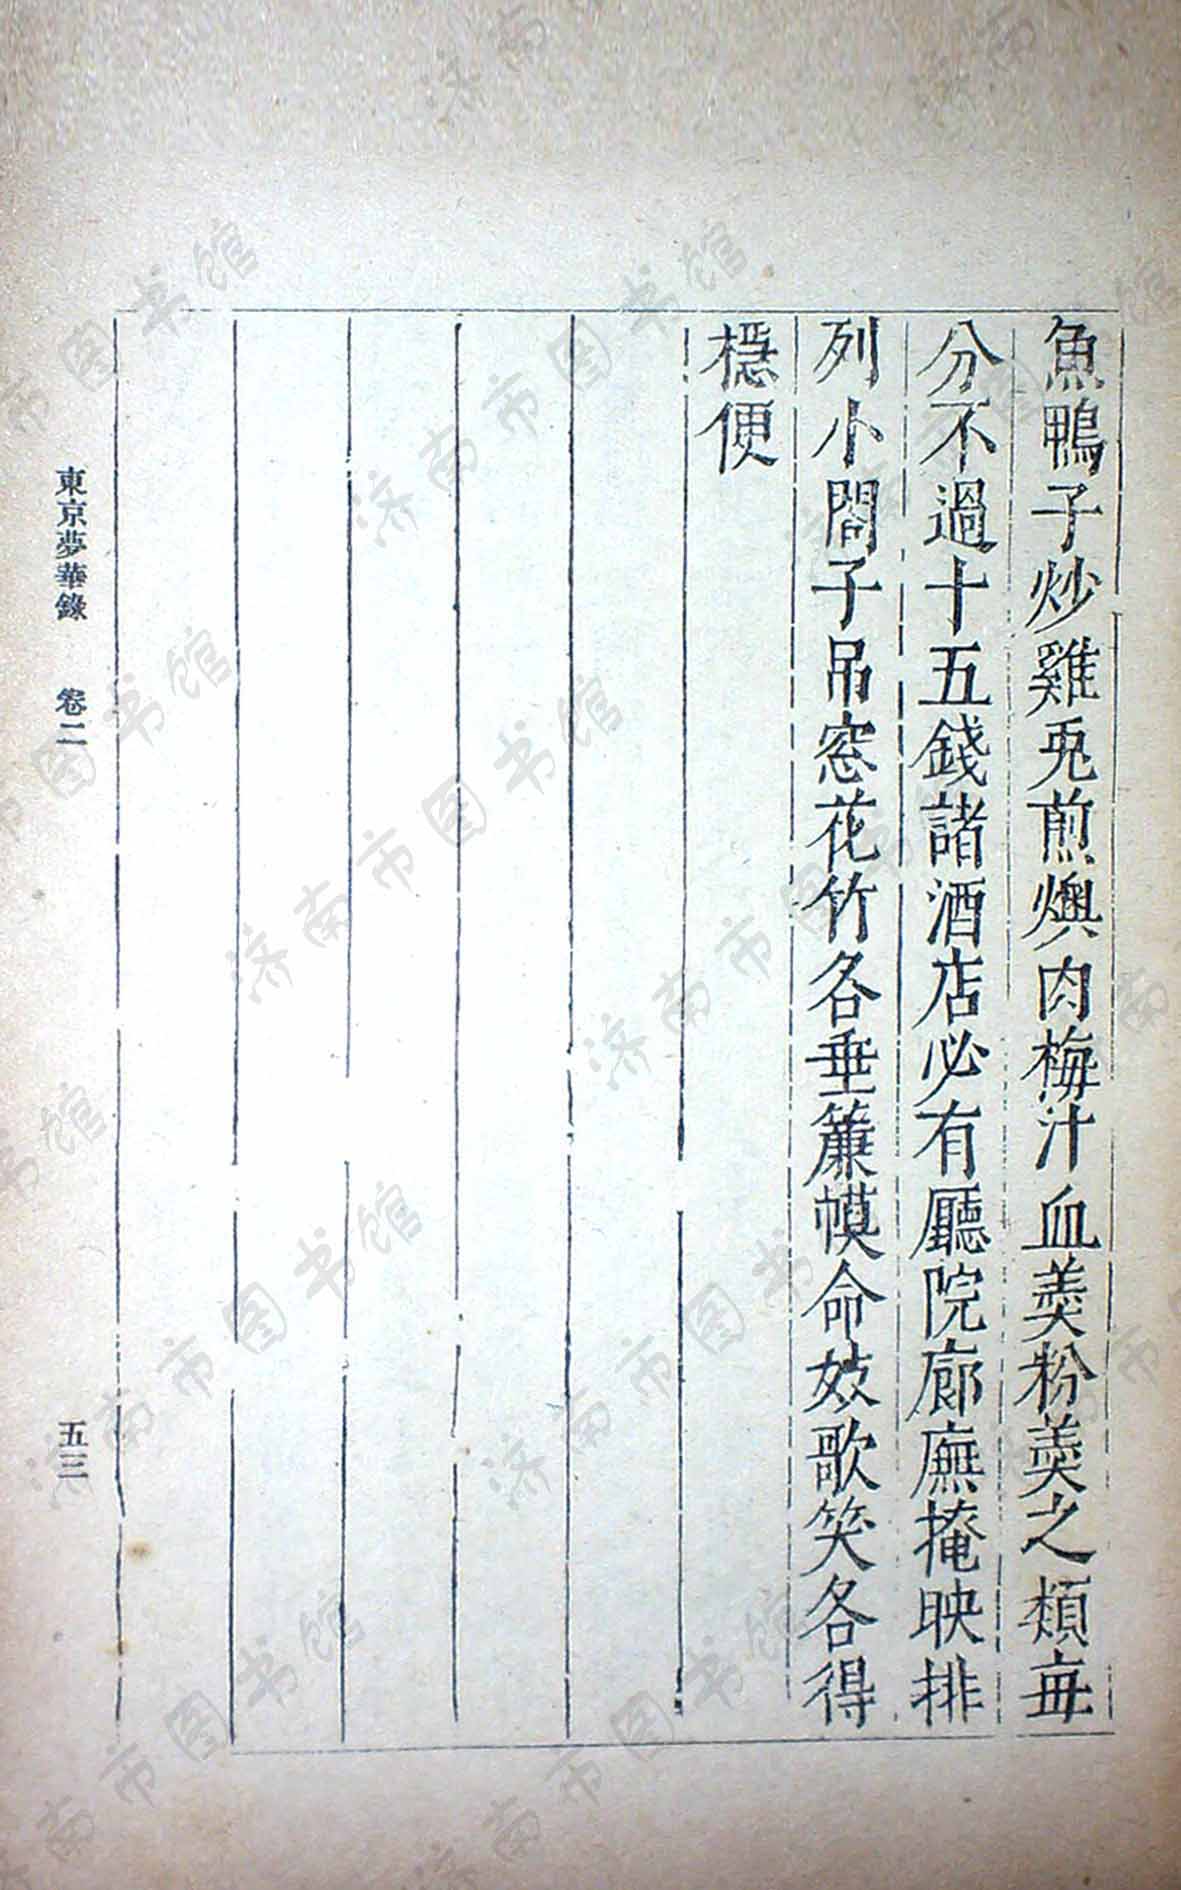 魚鴨子炒雞兎煎燠肉梅汁血羹粉羹之類每
分不過十五錢諸酒店必有廳院廊廡掩映排
列小閤子吊窓花竹各垂簾幙命妓歌笑各得
穩便
東京夢華錄 卷二 五三
济南市图书馆